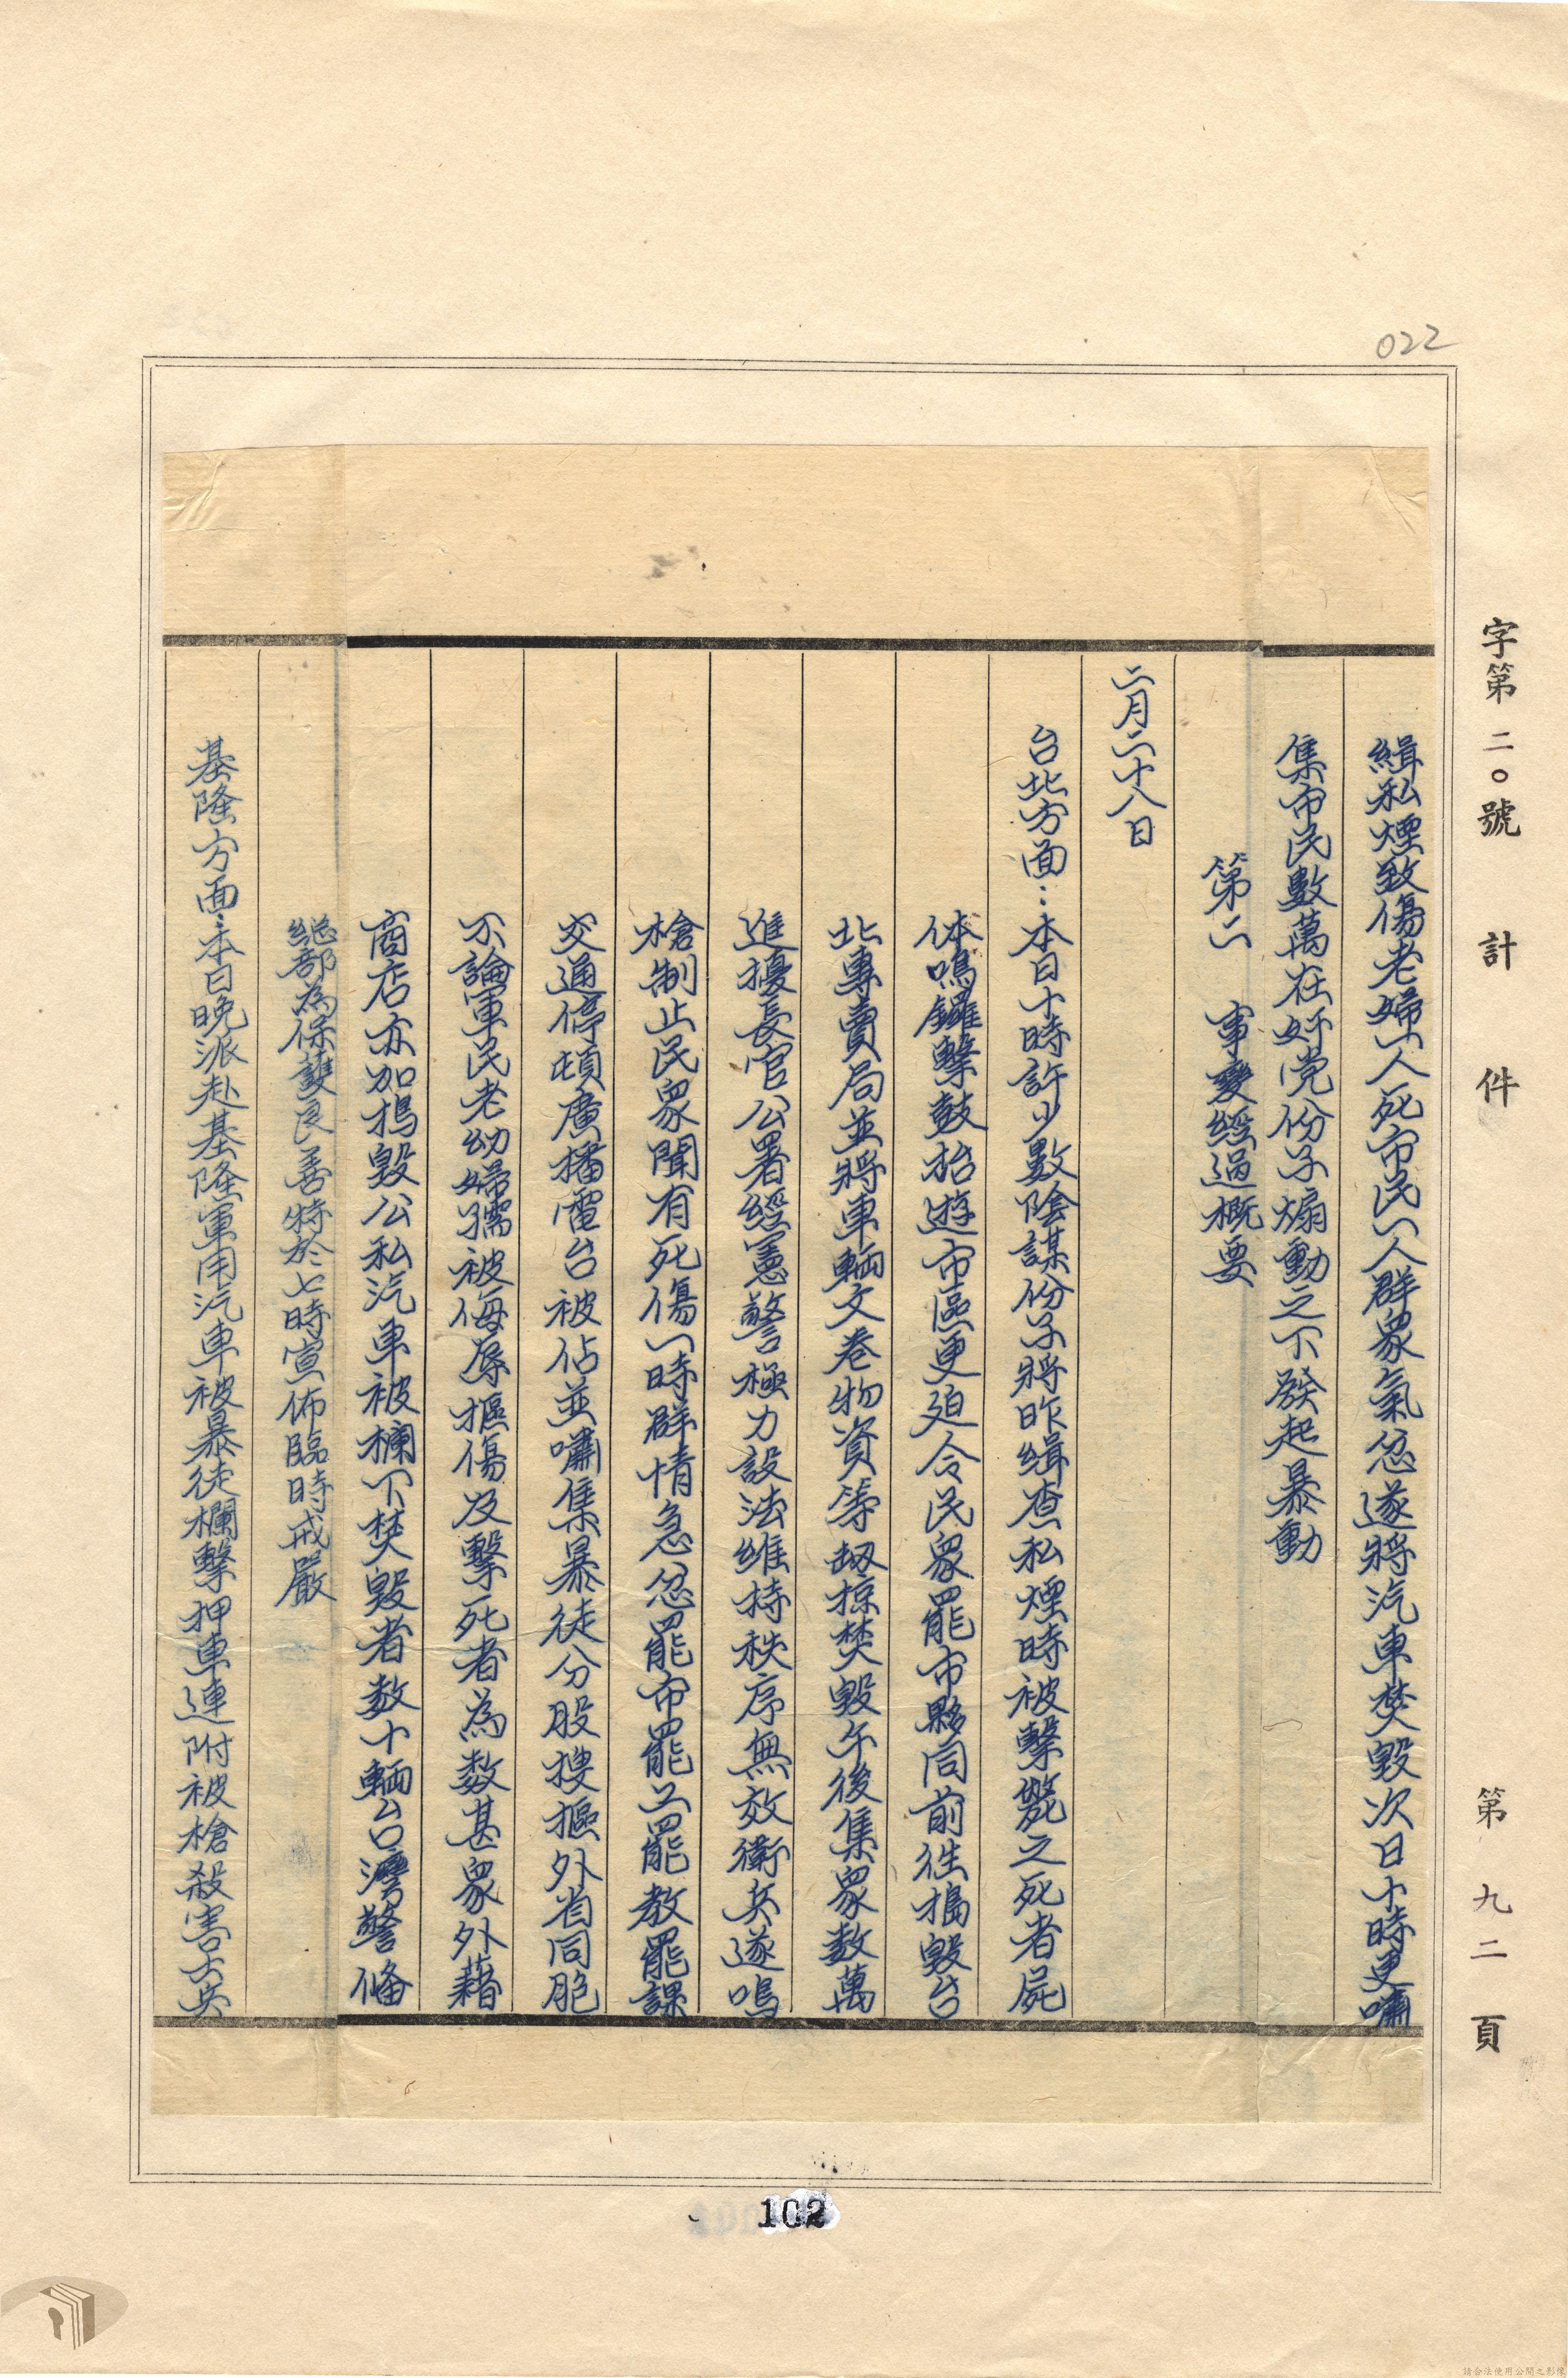 022
字第二〇號 計 件 第九二頁
緝私煙致傷老婦一人死市民一人群衆氣忿遂將汽車焚毀次日十時更嘯
集市民數萬在奸党份子煽動之下發起暴動
第二 事變經過概要
二月二十八日
台北方面：本日十時許少數陰謀份子將昨緝查私煙時被擊斃之死者屍
体鳴鑼擊鼓抬遊市區更廹令民衆罷市夥同前往搗毀台
北專賣局並將車輛文卷物資等刼掠焚毀午後集衆数萬
進擾長官公署經憲警極力設法維持秩序無效衛兵遂鳴
槍制止民衆聞有死傷一時群情急忿罷市罷工罷教罷課
交通停頓廣播電台被佔並嘯集暴徒分股搜摳外省同胞
不論軍民老幼婦孺被侮辱摳傷及擊死者為数甚衆外藉
商店亦加搗毀公私汽車被欄下焚毀者数十輛台灣警偹
総部為保護良善特於七時宣佈臨時戒嚴
基隆方面：本日晚派赴基隆軍用汽車被暴徒欄擊押車連附被槍殺害士兵
102
請合法使用公開之影像